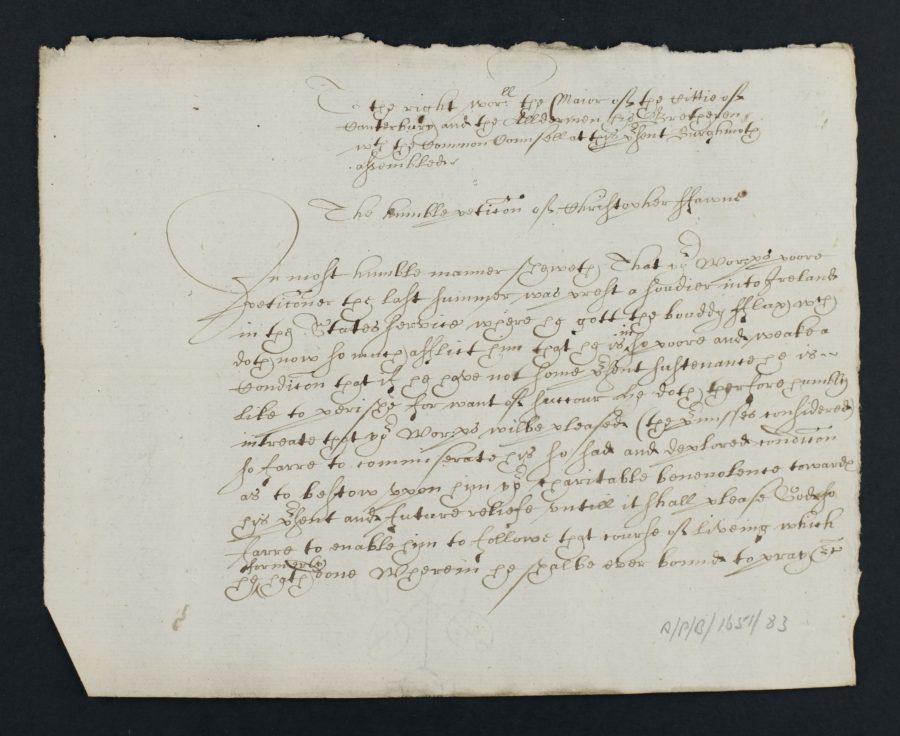 To the right wor:ll the Maior of the Cittie of
Canterbury and the Aldermen, the Bretheren,
wth the Common Counsell at this p̱sent Burghmote
assembled.
The humble peticõn of Christopher ffawne
In most humble manner sheweth, That yor Worpps poore
peticõner the last summer was prest a souldier into Ireland
in the States service where he gott the bouddy fflax, wch
doth now so much afflict him that he is in so poore and weake a
Condicõn that if he have not some p̱sent sustenance he is
like to perishe for want of succour he doth therfore humbly
intreate that yor Worpps wilbe pleased (the p̱misses considered)
so farre to commiserate his so sad and deplored condicõn
as to bestow upon him yor charitable benevolence towards
his p̱sent and future reliefe untill it shall please God so
farre to enable him to followe that course of liveing which
formerly
he hath done Wherein he shalbe ever bound to pray &c
A/P/B/1651/83